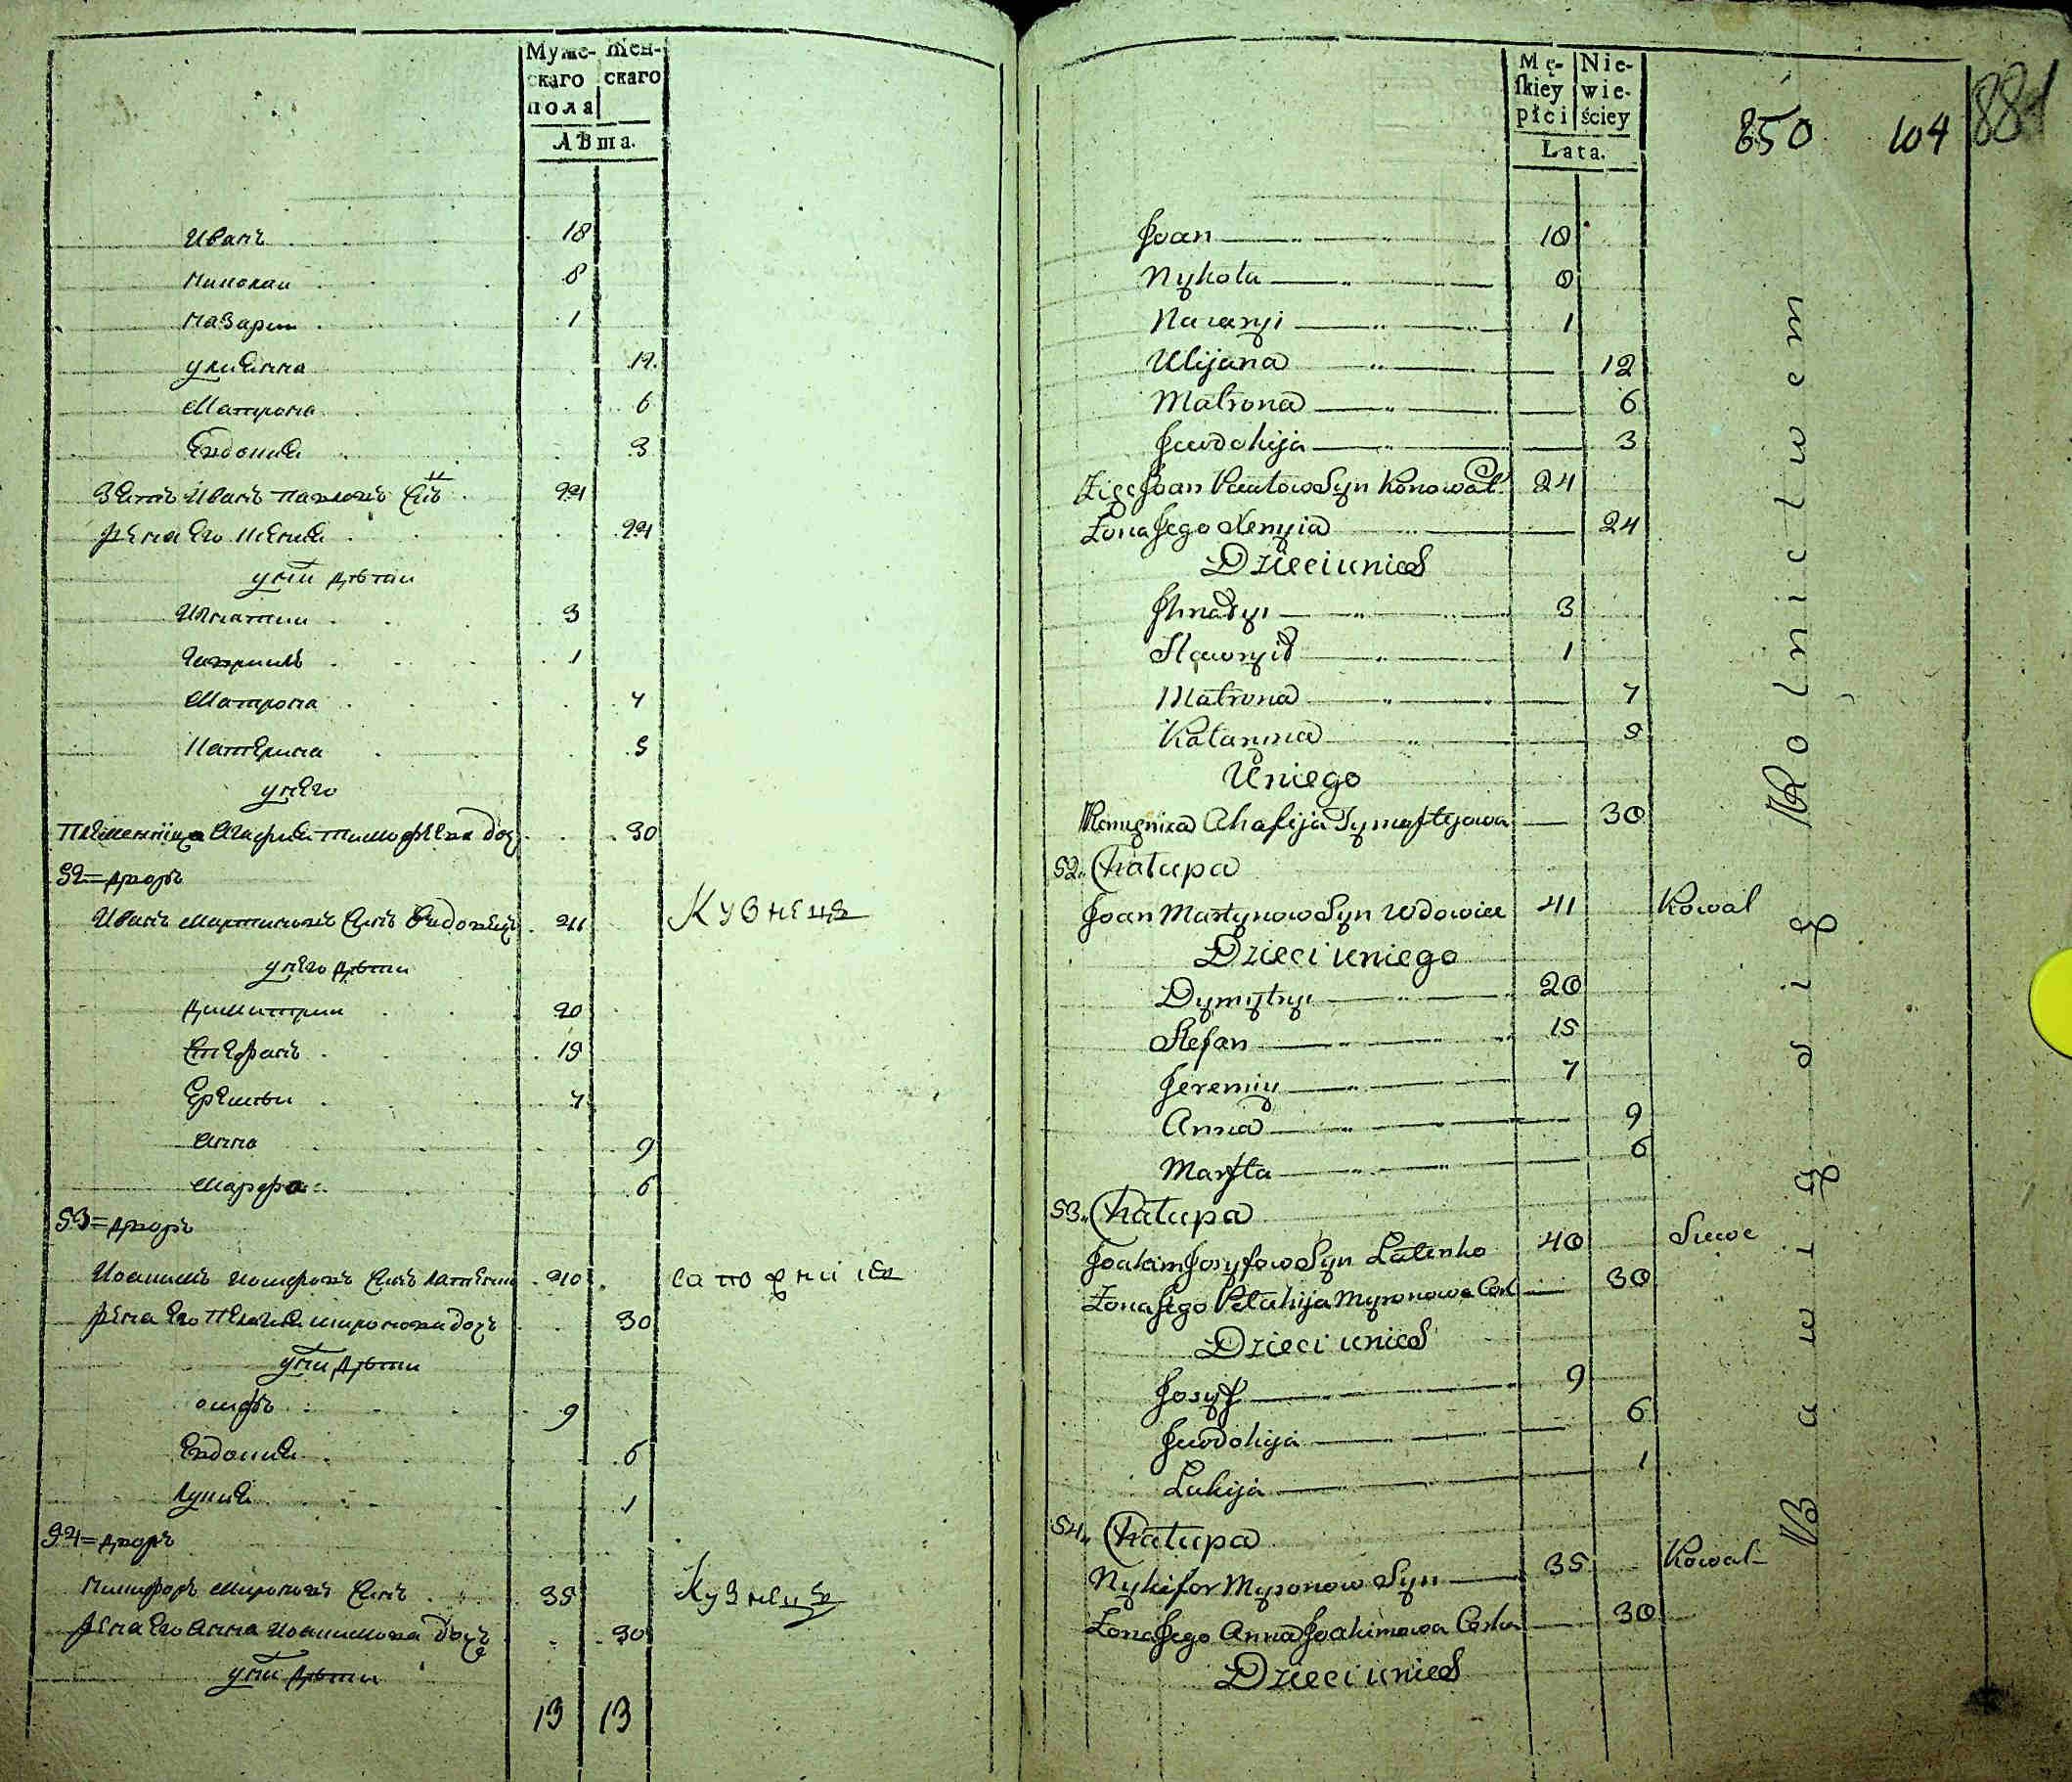 Муже-скаго пола
Жен-скаго
Лѣта.
Иванъ 18
Николаи 8
Назарии 1
Улиянна 12
Матрона 6
Евдокия 3
Зять Иванъ Павловъ Снъ 24
Жена Его Ксения 24
у них дѣти
Игнатии 3
Гавриилъ 1
Матрона 7
Катерина 5
у него
племянница Агафия Тимофѣева дочь 30
52=дворъ
Иванъ Мартиновъ Снъ Видовецъ 41 Кузнецъ
у него дѣти
Димитрии 20
Стефанъ 15
Еремѣи 7
Анна 9
Марфа 6
53=дворъ
Иоакимъ Иосифовъ Снъ 40
Жена Его Пелагия Миронова дочь 30
у них дѣти
Осифъ 9
Евдокия 6
Лукия 1
54=дворъ
Никифоръ Мироновъ Снъ 35 Кузнецъ
Жена Его Анна Иоакимова дочь 30
у них дѣти
13 13
Mę-skiey płci
Nie-wie-ściey
Lata.
850 104 881
Joan 18
Nykola 8
Nazaryi 1
Ulijana 12
Matrona 6
Jewdokija 3
Zięć Joan Pawłow Syn Konował 24
Żona Jego Xenyia 24
Dzieci u nich
Jhnatyi 3
Hawryił 1
Matrona 7
Kataryna 5
U niego
Ahafija Tymoftejowa 30
52. Chałupa
Joan Martynow Syn Wdowiec 41 Kowal
Dzieci u niego
Dymytryi 20
Stefan 15
Jeremiy 7
Anna 9
Marfta 6
53. Chałupa
Joakim Josyfow Syn Latenko 40 Szewc
Żona Jego Pełahija Myronowa Cork 30
Dzieci u nich
Josyf 9
Jewdokija 6
Łukija 1
54. Chałupa
Nykifor Myronow Syn 35 Kowal
Żona Jego Anna Joakimowa Corka 30
Dzieci u nich
Bawią się Rolnictwem